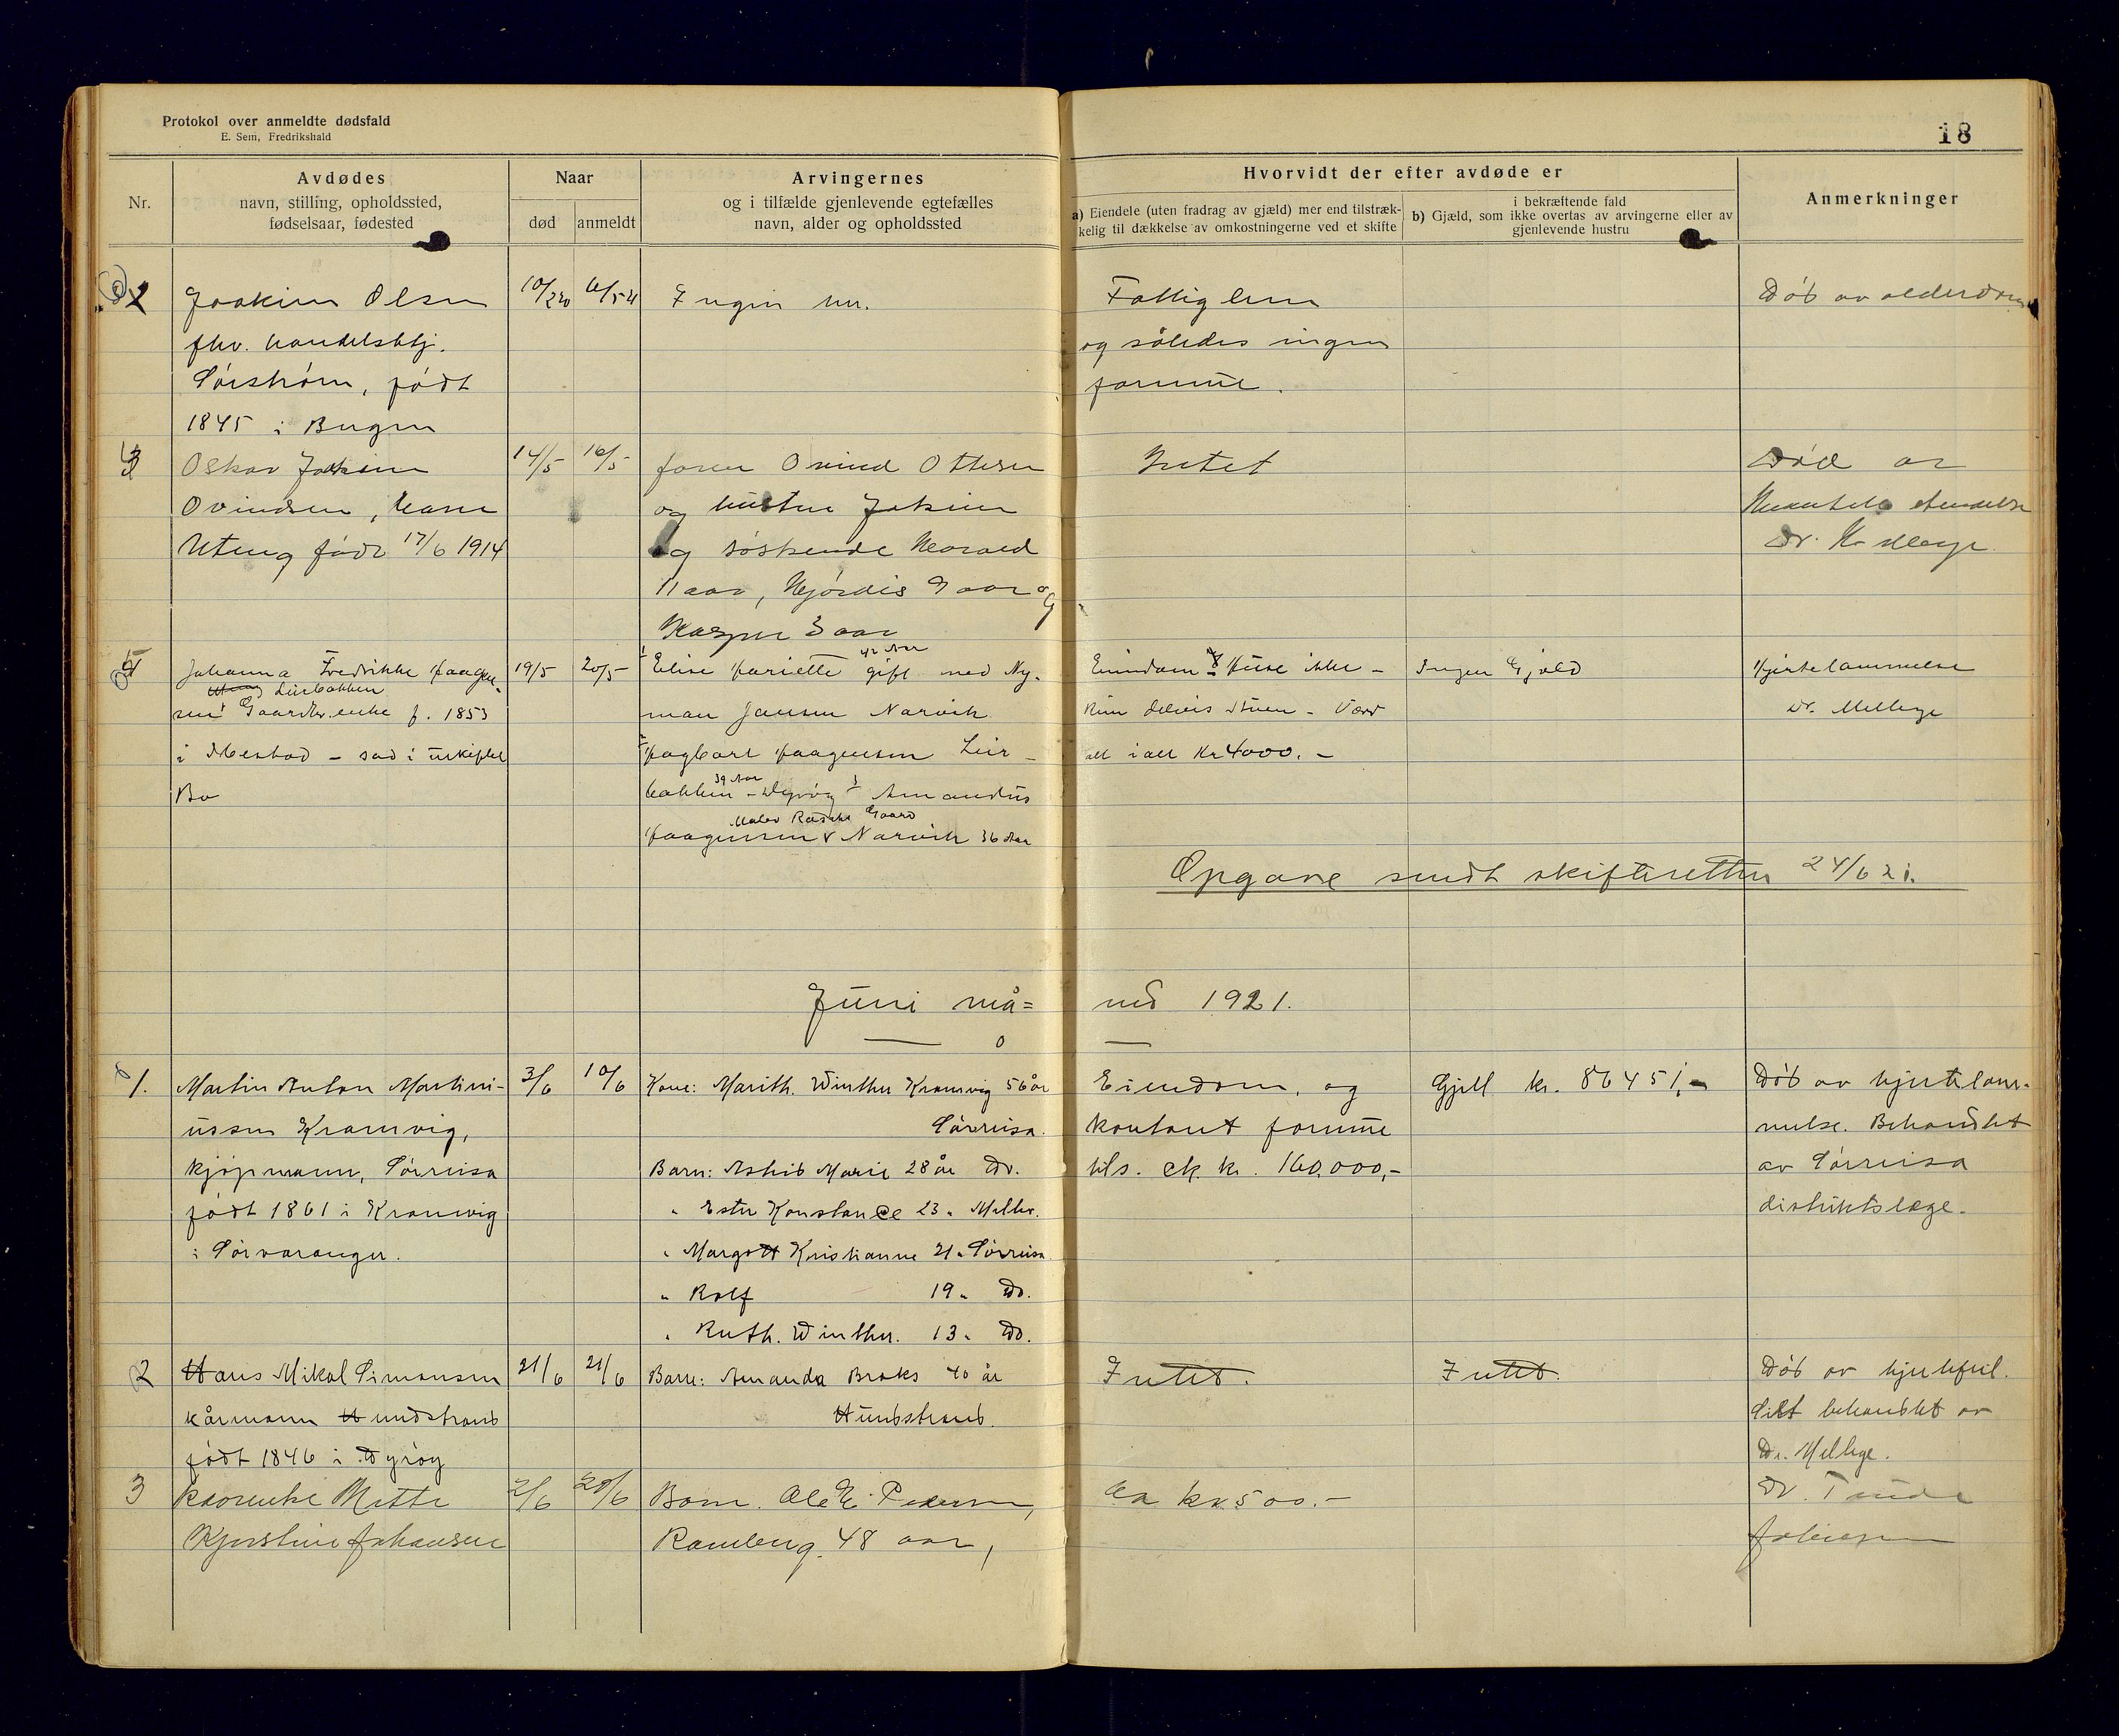 Protokol over anmeldte dødsfald
E. Sem, Fredrikshald
18
Nr.
Avdødes
navn, stilling, opholdssted,
fødselsaar, fødested
Naar
død
anmeldt
Arvingernes
og i tilfælde gjenlevende egtefælles
navn, alder og opholdssted
Hvorvidt der efter avdøde er
a) Eiendele (uten fradrag av gjæld) mer end tilstræk-
kelig til dækkelse av omkostningerne ved et skifte
i bekræftende fald
b) Gjæld, som ikke overtas av arvingerne eller av
gjenlevende hustru
Anmerkninger
2
Joakim Olsen
fhv. handelsbtj.
Sørstrøm, født
1845 i Bugen
Ingen
Fattiglem
og således ingen
formue.
Død av alderdom
3
Oskar Jokim
Ovindsen,
født 17/6 1914
14/5
16/5
Ovind Ottesen
og hustru Jokim
og søskende Harald
11 aar, Hjørdis 9 aar og
Kasper 3 aar
Intet
Død av
Dr.
4
Johanna Fredrikke Haagen-
Leirbakken
sen Gaardbr.enke f. 1853
i Mestad - sad i uskiftet
Bo
19/5
20/5
1 42 Aar
Elise Hariette gift med Ny-
man Jansen Narvik
2 Hagbart Haagensen Leir-
39 Aar
bakken - Dyrøy 3 Amandus
Maler Gaard
Haagensen Narvik 36 Aar
Eiendom & Huse ikke -
kun delvis Stuen - Værd
alt ialt Kr 4000.-
Ingen Gjæld
Hjertelammelse
Dr. Mellbye
Opgave sendt skifteretten 24/6 21.
Juni må=
ned 1921.
1.
Martin Anton Martini-
ussen Kramvig,
kjøpmann, Sørreisa
født 1861 i Kramvig
i Sørvaranger.
3/6
10/6
Kone: Marith. Winther Kramvig 56 år
Sørreisa.
Barn: Astrid Marie 28 år Do.
" Ester Konstance 23 "
" Margott Kristianne 21 " Sørreisa
" Rolf 19 " Do.
" Ruth. Winther. 13 " Do.
Eiendom, og
kontant formue
tils. ck. kr. 160,000,-
Gjell kr. 86451,-
Død av hjertelam-
melse. Behandlet
av Sørreisa
distriktslege.
2
Hans Mikal Simonsen
kårmann Hundstrand
født 1846 i Dyrøy
21/6
21/6
Barn: Amanda Broks 40 år
Hundstrand.
Intet.
Intet.
Død av hjertefeil.
Sist behandlet av
Dr. Mellbye.
3
Kaarenke Mette
Kjerstine Johansen
2/6
20/6
Barn. Ole E. Pedersen,
Ramberg. 48 aar,
Ca kr 500.-
Dr.